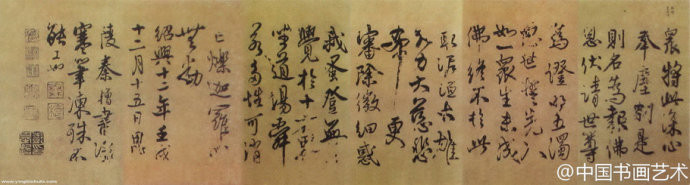 衆將此深心
奉塵刹是
則名為報佛
恩伏請世尊
為證明五濁
惡世誓先入
如一衆生未成
佛終不於此
取泥洹大雄
大力大慈悲
希更
審除微細惑
我蚤登無上
覺於十方界
坐道場舜
若多性可消
亡爍迦羅心
無動
紹興十二年壬戌
十二月十五日毘
陵秦檜書
寒筆凍殊不
能工
@中国书画艺术